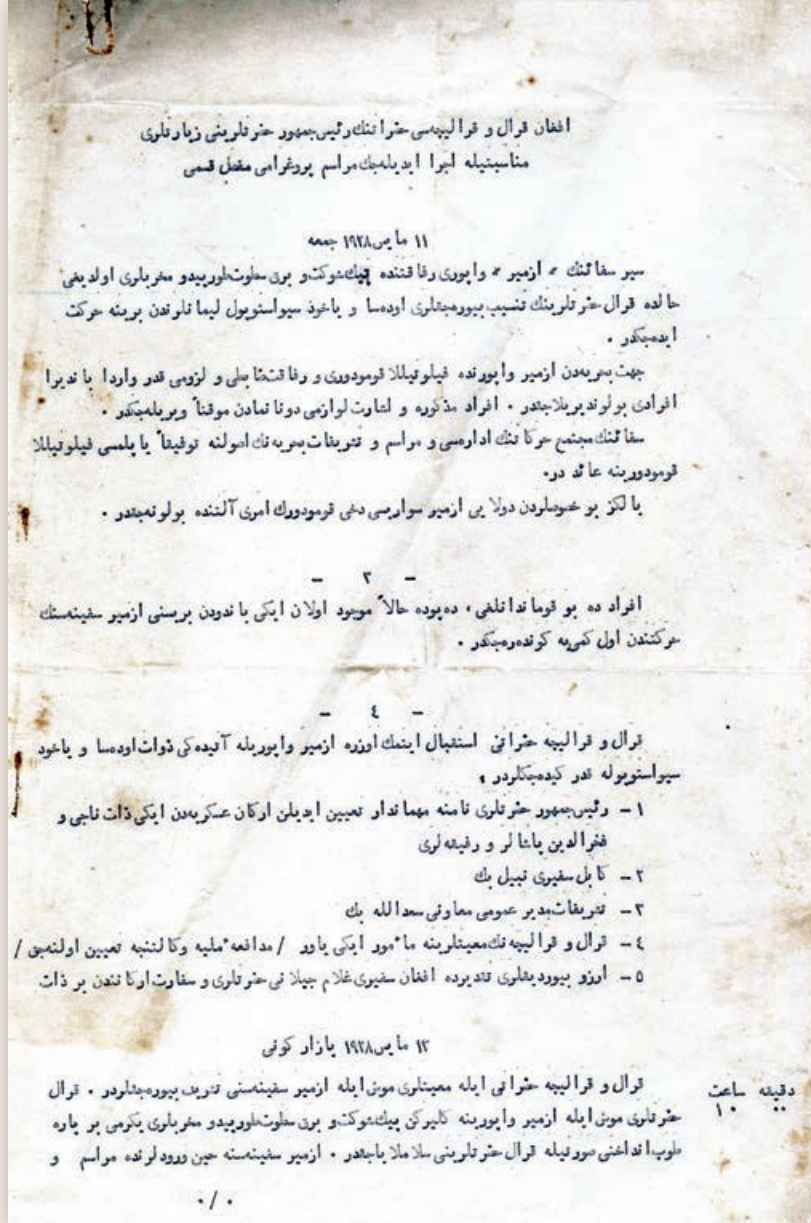 افغان قرال و قراليچه‌سی حضراتنك رئيس‌جمهور حضرتلرينی زيارتلری
مناسبتيله اجرا ايديله‌جك مراسم پروغرامی مفصل قسمی
١١ مايس ١٩٢٨ جمعه
سير سفائنك " ازمير " واپوری رفاقتنده پيك‌شوكت و برق سطوت طورپيدو مخربلری اولديغی
حالده قرال حضرتلرينك تنسيب بيوره‌جقلری اوده‌سا و ياخود سيواستوپول ليمانلرندن برينه حركت
ايده‌جكدر .
جهت بحريه‌دن ازمير واپورنده فيلوتيللا قومودوری و رفاقت ضابطی و لزومی قدر واردا باندیرا
افرادی بولونديريلاجقدر . افراد مذكوره و اشارت لوازمی دونانمادن موقتاً ويريله‌جكدر .
سفائنك مجتمع حركاتنك اداره‌سی و مراسم و تشريفات بحريه‌نك اصولنه توفيقاً ياپلمسی فيلوتيللا
قومودورينه عائد در.
يالكز بو خصوصلردن دولايی ازمير سواريسی دخی قومودورك امری آلتنده بولونه‌جقدر .
– ٣ –
افراد ده بو قوماندانلغی ، ده‌پوده حالاً موجود اولان ايكی باندودن بريسنی ازمير سفينه‌سنك
حركتندن اول كمی‌يه كوندره‌جكدر .
– ٤ –
قرال و قراليچه حضراتی استقبال ايتمك اوزره ازمير واپوريله آتيده‌كی ذوات اوده‌سا و ياخود
سيواستوپوله قدر كيده‌جكلردر .
١ – رئيس‌جمهور حضرتلری نامنه مهماندار تعيين ايديلن اركان عسكريه‌دن ايكی ذات ناجی و
فخرالدين پاشالر و رفيقه‌لری
٢ – كابل سفيری نبيل بك
٣ – تشريفات مدير عمومی معاونی سعدالله بك
٤ – قرال و قراليچه‌نك معيتلرينه مأمور ايكی ياور / مدافعهٔ مليه وكالتنجه تعيين اولنه‌جق /
٥ – آرزو بيورديقلری تقديرده افغان سفيری غلام جيلانی حضرتلری و سفارت اركانندن بر ذات
١٣ مايس ١٩٢٨ بازار كونی
دقيقه ساعت
٠٠ ١٠
قرال و قراليچه حضراتی ايله معيتلری موش ايله ازمير سفينه‌سنی تشريف بيوره‌جقلردر . قرال
حضرتلری موش ايله ازمير واپورينه كليركن پيك‌شوكت و برق سطوت طورپيدو مخربلری يكرمی بر پاره
طوپ انداختی صورتيله قرال حضرتلرينی سلاملاياجقدر . ازمير سفينه‌سنه حين ورودلرنده مراسم و
٠/٠